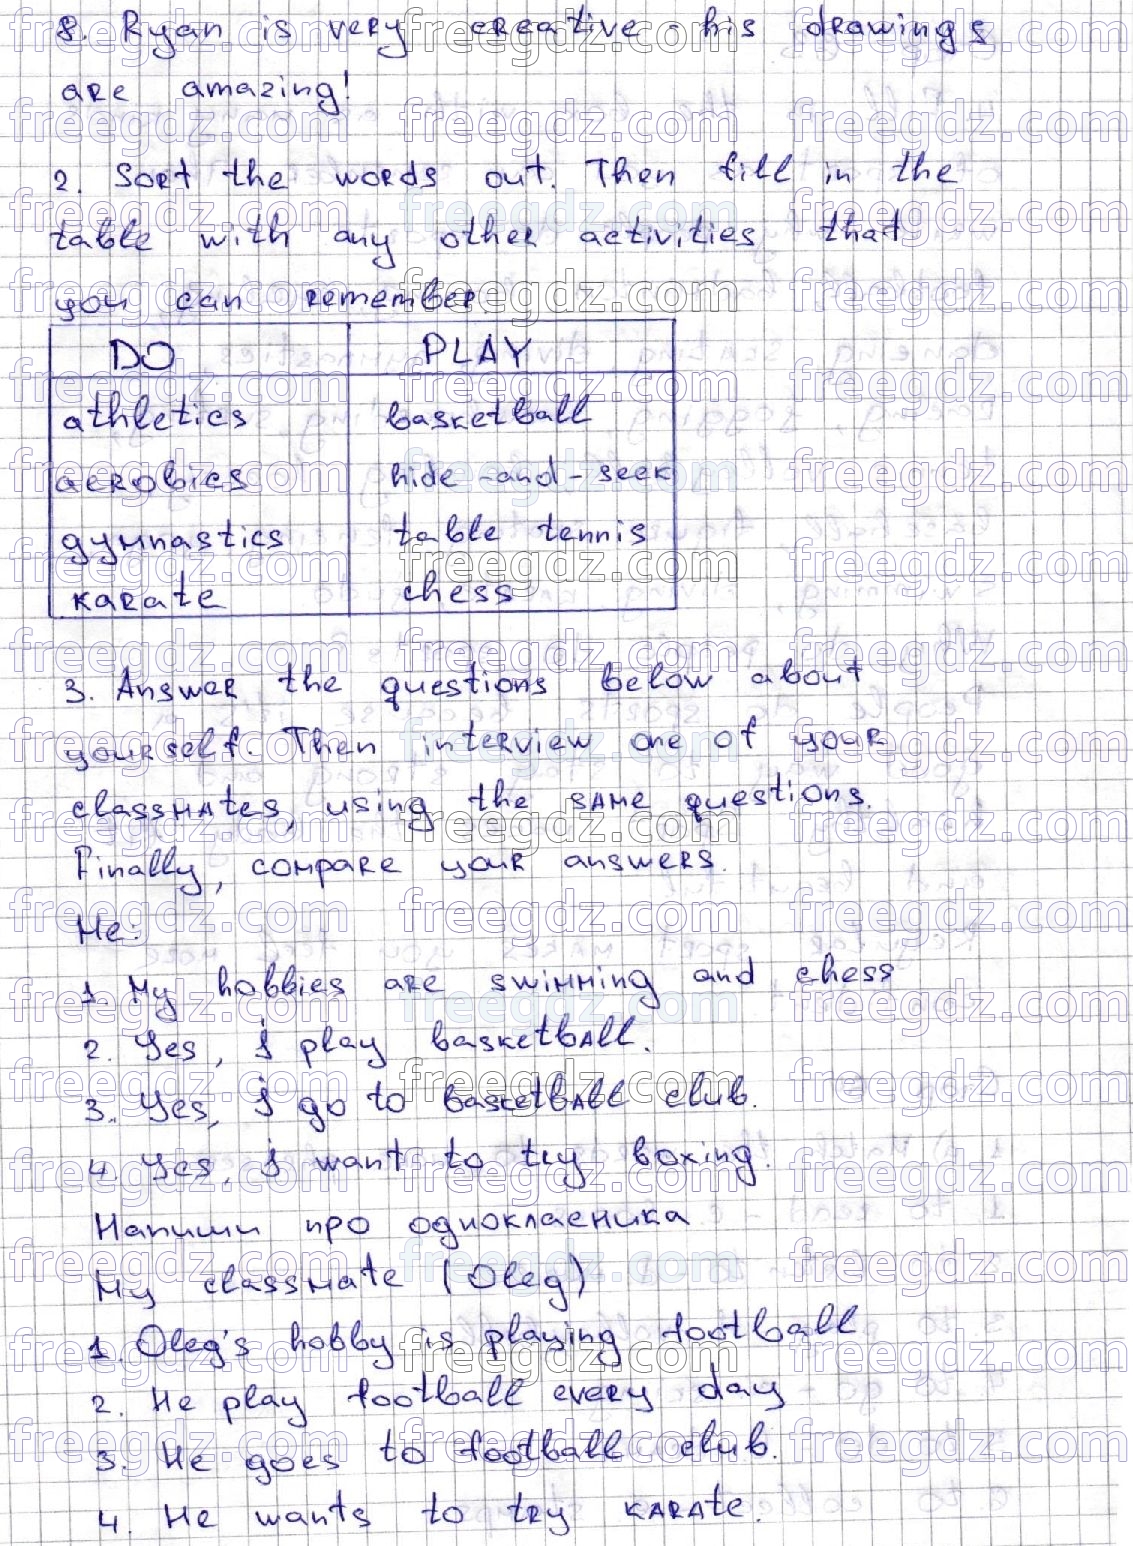 8. Ryan is very creative - his drawings
are amazing!
2. Sort the words out. Then fill in the
table with any other activities that
you can remember.
DO PLAY
athletics basketball
aerobics hide-and-seek
gymnastics table tennis
karate chess
3. Answer the questions below about
yourself. Then interview one of your
classmates, using the same questions.
Finally, compare your answers.
Me:
1. My hobbies are swimming and chess
2. Yes, I play basketball.
3. Yes, I go to basketball club.
4. Yes, I want to try boxing.
Напиши про однокласника
My classmate (Oleg)
1. Oleg's hobby is playing football
2. He play football every day
3. He goes to football club.
4. He wants to try karate.
freegdz.com